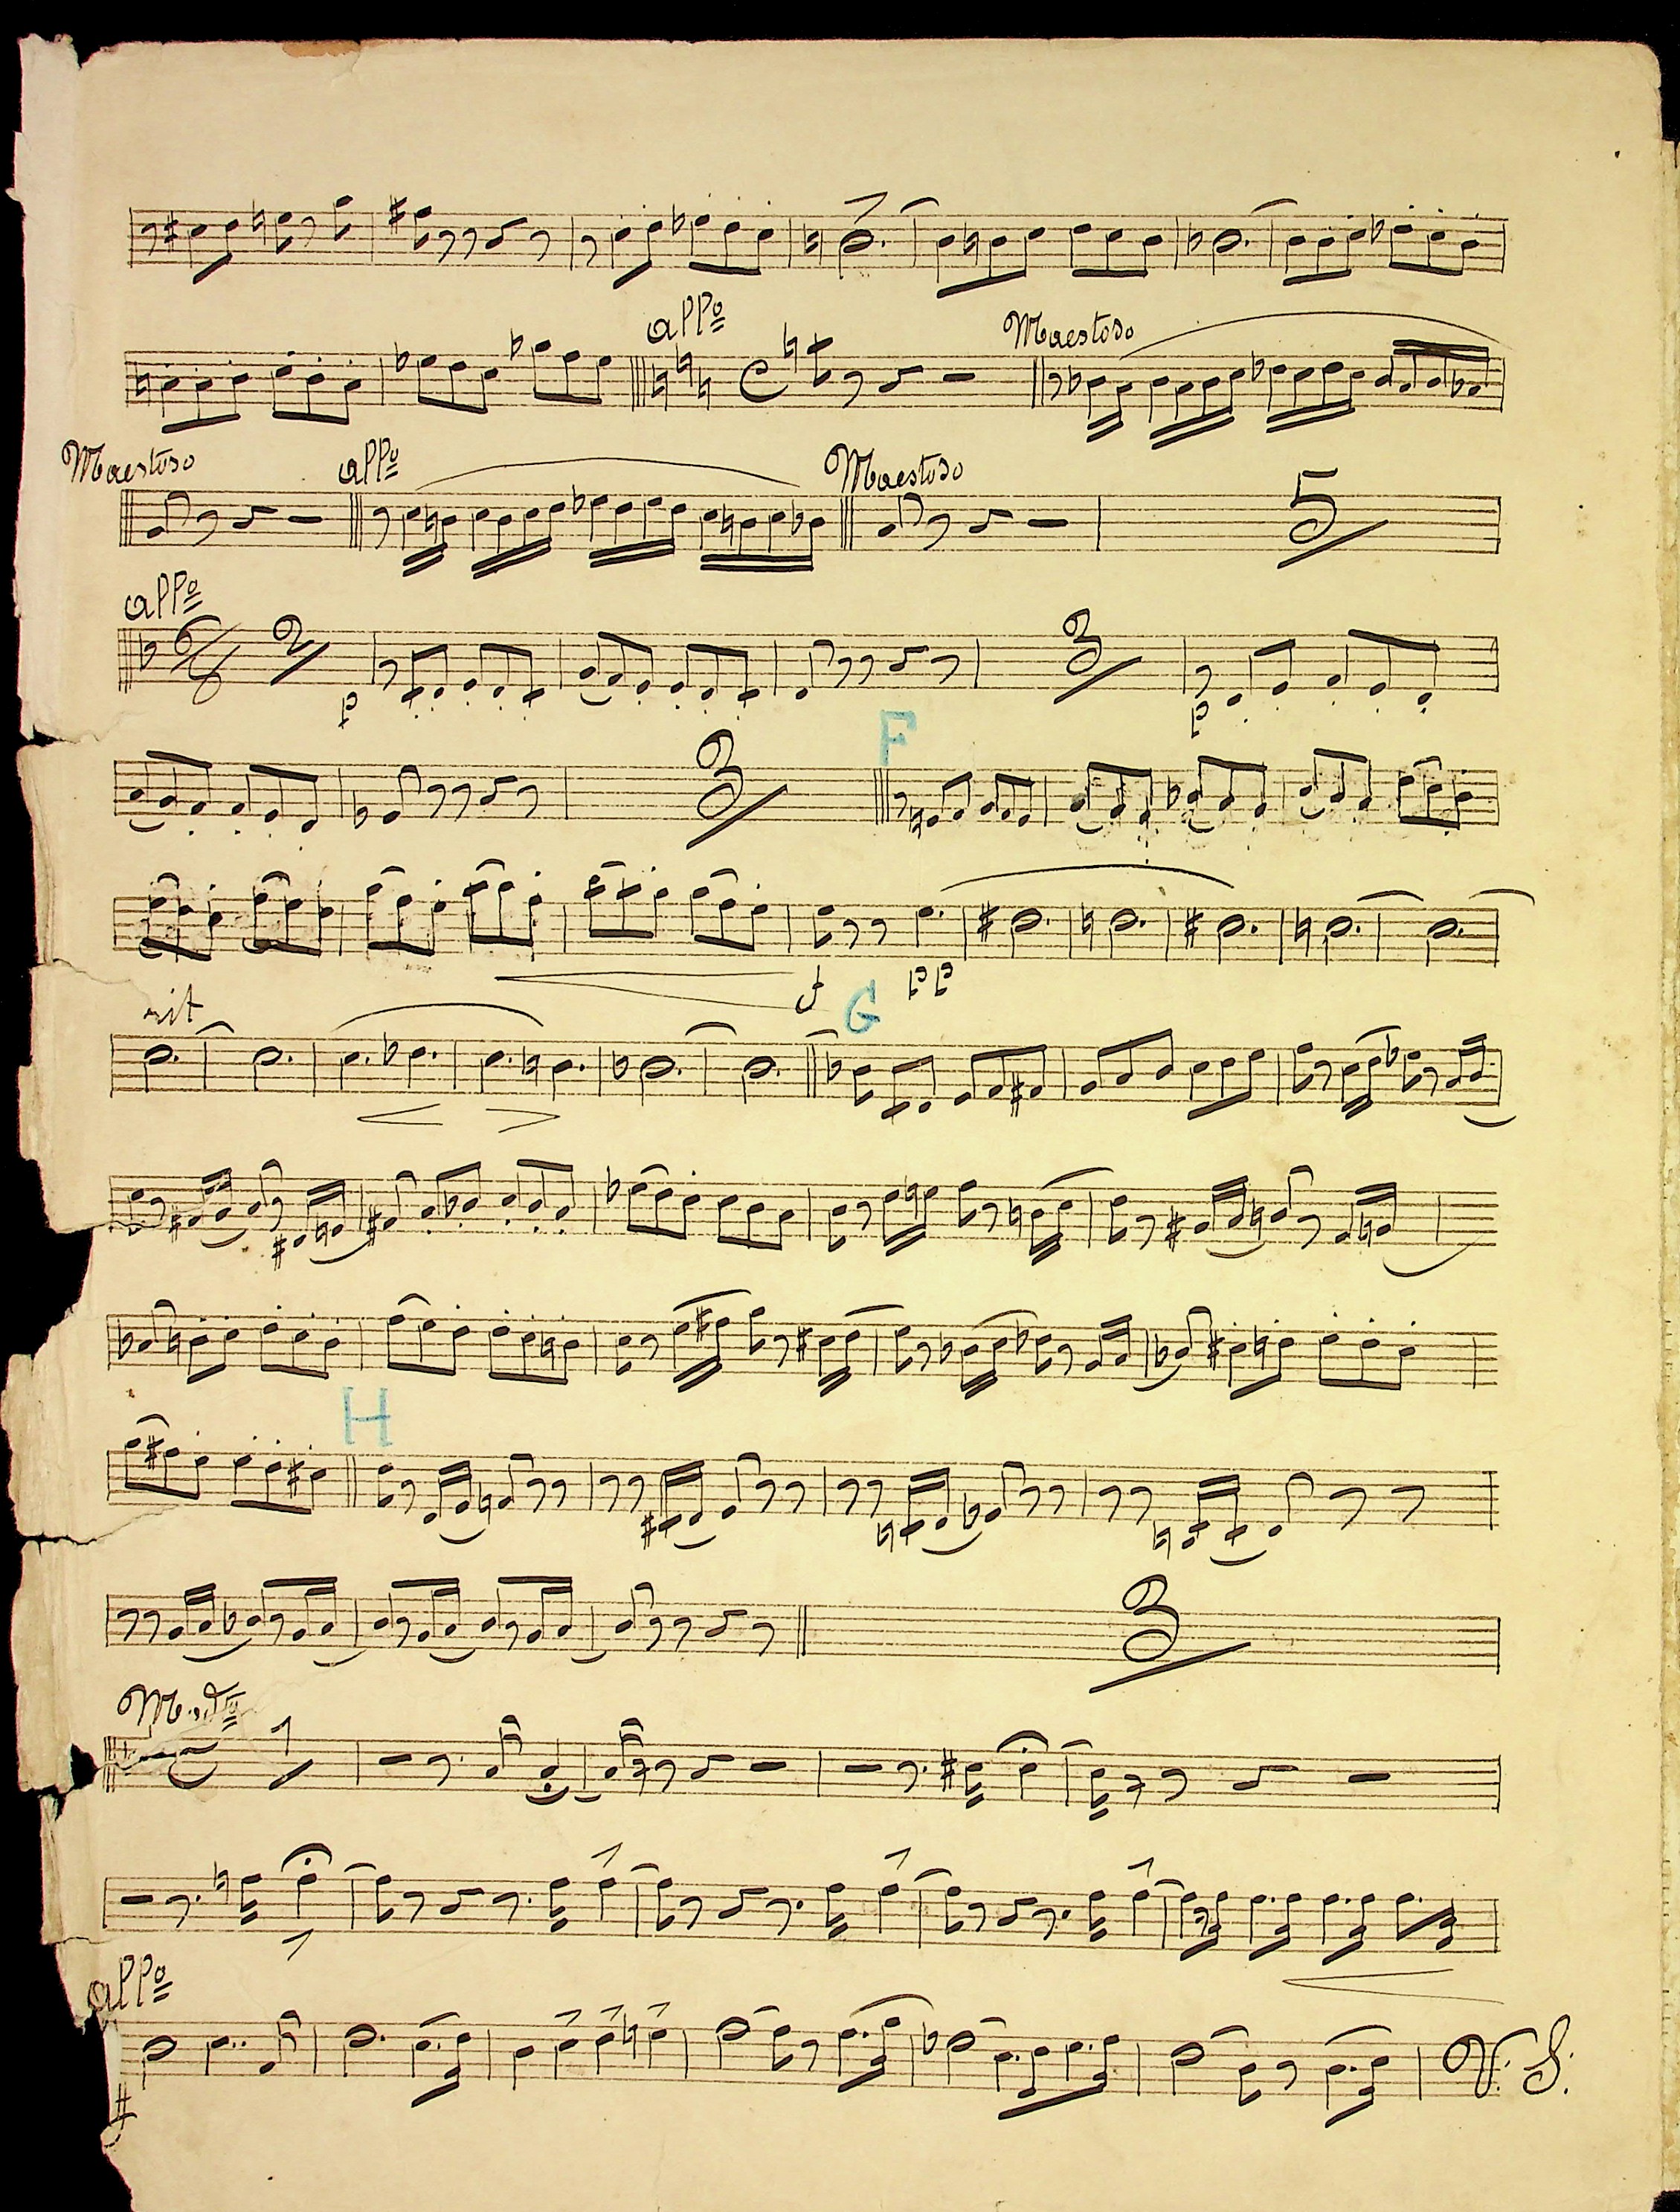 allº
Maestoso
Maestoso allº Maestoso
5
allº
6/8 2 3
p p
F
3
f pp
rit G
H
3
Modto
1
allº
V. S.